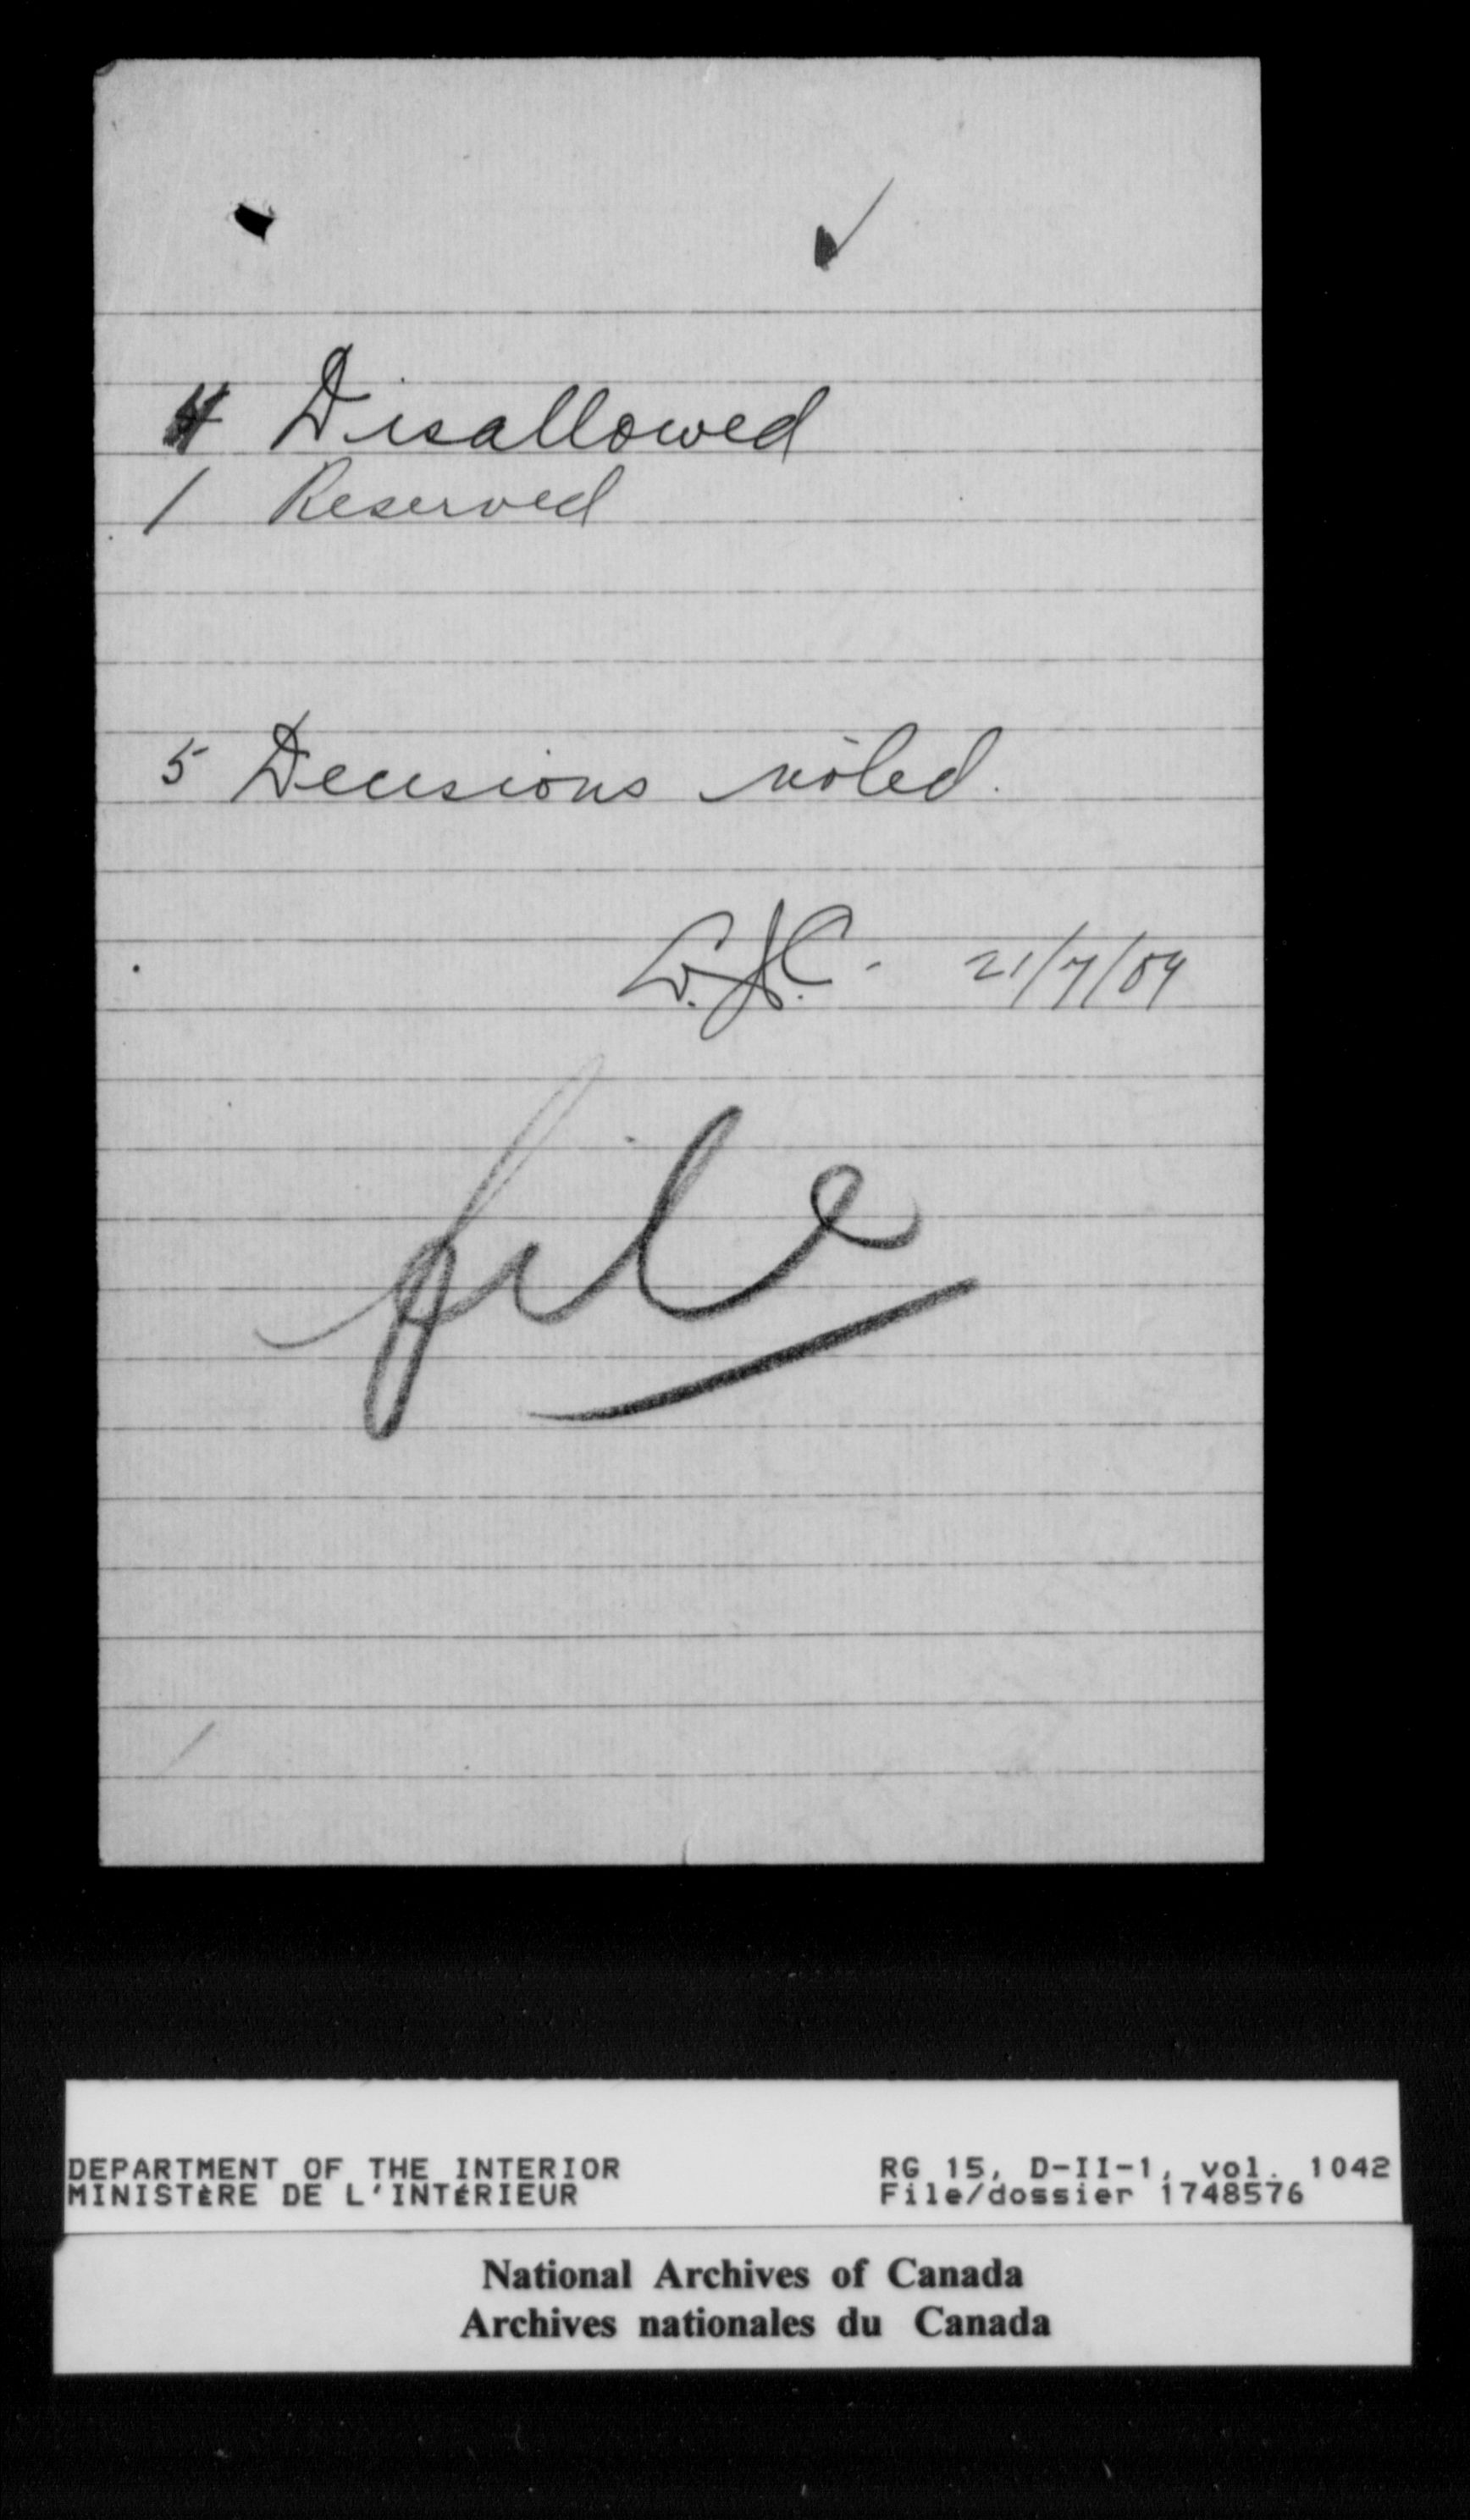 ✓
4 Disallowed
1 Reserved
5 Decisions noted.
21/7/09
file
DEPARTMENT OF THE INTERIOR
MINISTÈRE DE L'INTÉRIEUR
RG 15, D-II-1, vol. 1042
File/dossier 1748576
National Archives of Canada
Archives nationales du Canada